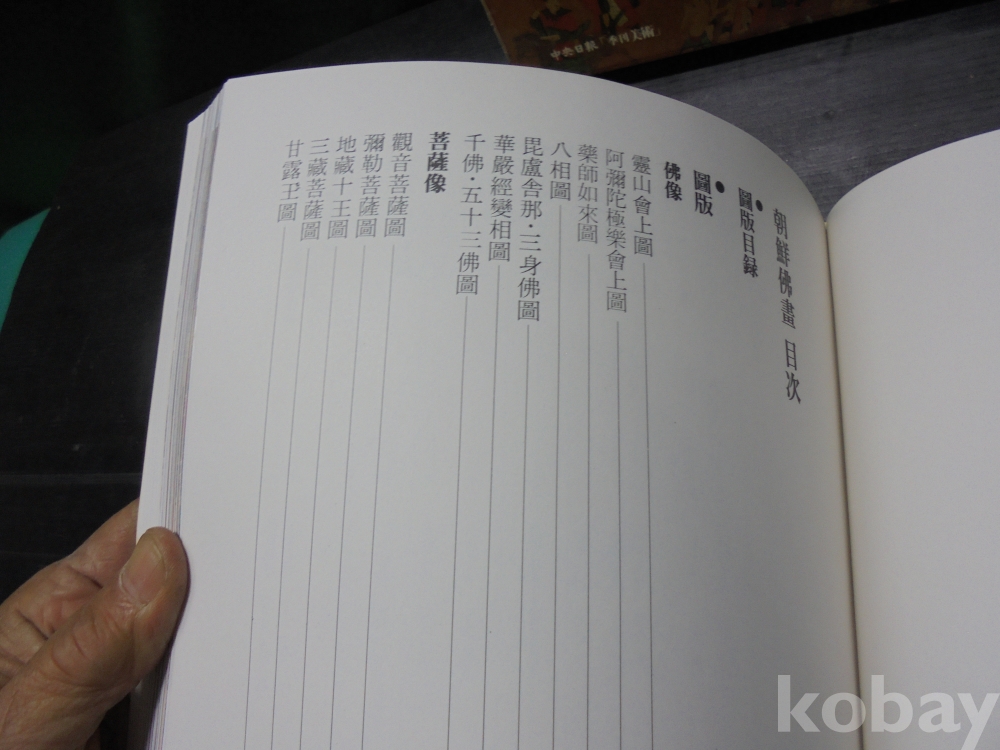 中央日報「季刊美術」
朝鮮佛畫 目次
●圖版目録
●圖版
佛像
靈山會上圖
阿彌陀極樂會上圖
藥師如來圖
八相圖
毘盧舎那·三身佛圖
華嚴經變相圖
千佛·五十三佛圖
菩薩像
觀音菩薩圖
彌勒菩薩圖
地藏十王圖
三藏菩薩圖
甘露王圖
kobay